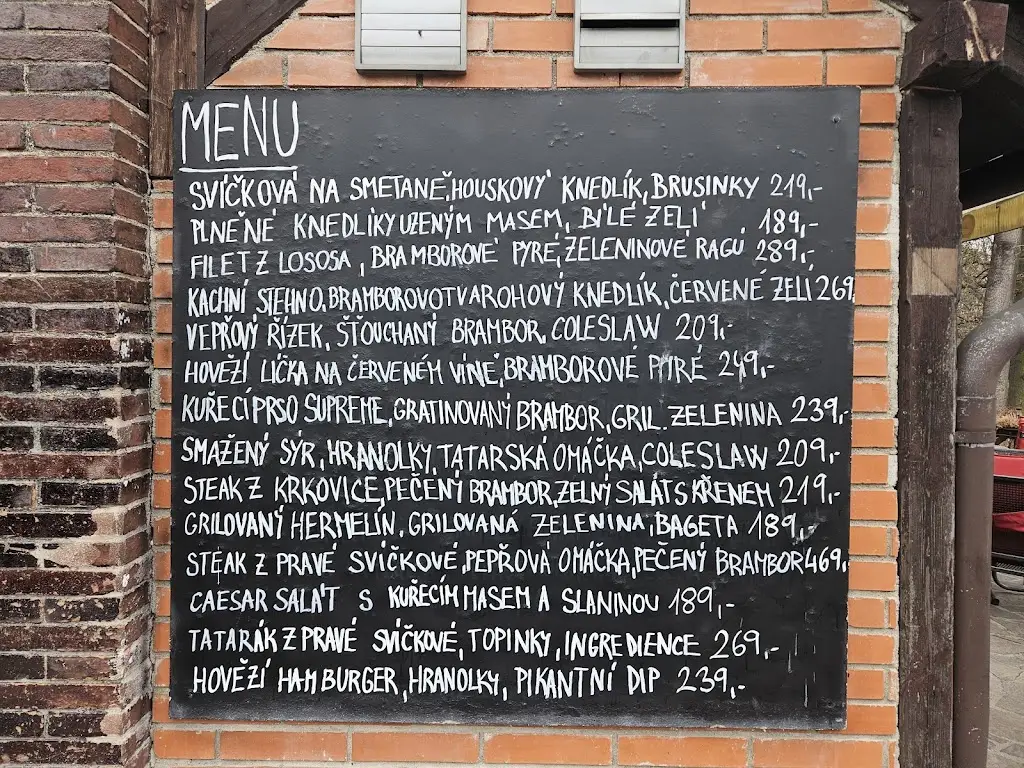 MENU
SVÍČKOVÁ NA SMETANĚ, HOUSKOVÝ KNEDLÍK, BRUSINKY 219,-
PLNĚNÉ KNEDLÍKY UZENÝM MASEM, BÍLÉ ZELÍ 189,-
FILET Z LOSOSA, BRAMBOROVÉ PYRÉ, ZELENINOVÉ RAGÚ 289,-
KACHNÍ STEHNO, BRAMBOROVOTVAROHOVÝ KNEDLÍK, ČERVENÉ ZELÍ 269,
VEPŘOVÝ ŘÍZEK, ŠŤOUCHANÝ BRAMBOR, COLESLAW 209,-
HOVĚZÍ LÍČKA NA ČERVENÉM VÍNĚ, BRAMBOROVÉ PYRÉ 249,-
KUŘECÍ PRSO SUPREME, GRATINOVANÝ BRAMBOR, GRIL. ZELENINA 239,-
SMAŽENÝ SÝR, HRANOLKY, TATARSKÁ OMÁČKA, COLESLAW 209,-
STEAK Z KRKOVICE, PEČENÝ BRAMBOR, ZELNÝ SALÁT S KŘENEM 219,-
GRILOVANÝ HERMELÍN, GRILOVANÁ ZELENINA, BAGETA 189,-
STEAK Z PRAVÉ SVÍČKOVÉ, PEPŘOVÁ OMÁČKA, PEČENÝ BRAMBOR 469,-
CAESAR SALÁT S KUŘECÍM MASEM A SLANINOU 189,-
TATARÁK Z PRAVÉ SVÍČKOVÉ, TOPINKY, INGREDIENCE 269,-
HOVĚZÍ HAMBURGER, HRANOLKY, PIKANTNÍ DIP 239,-